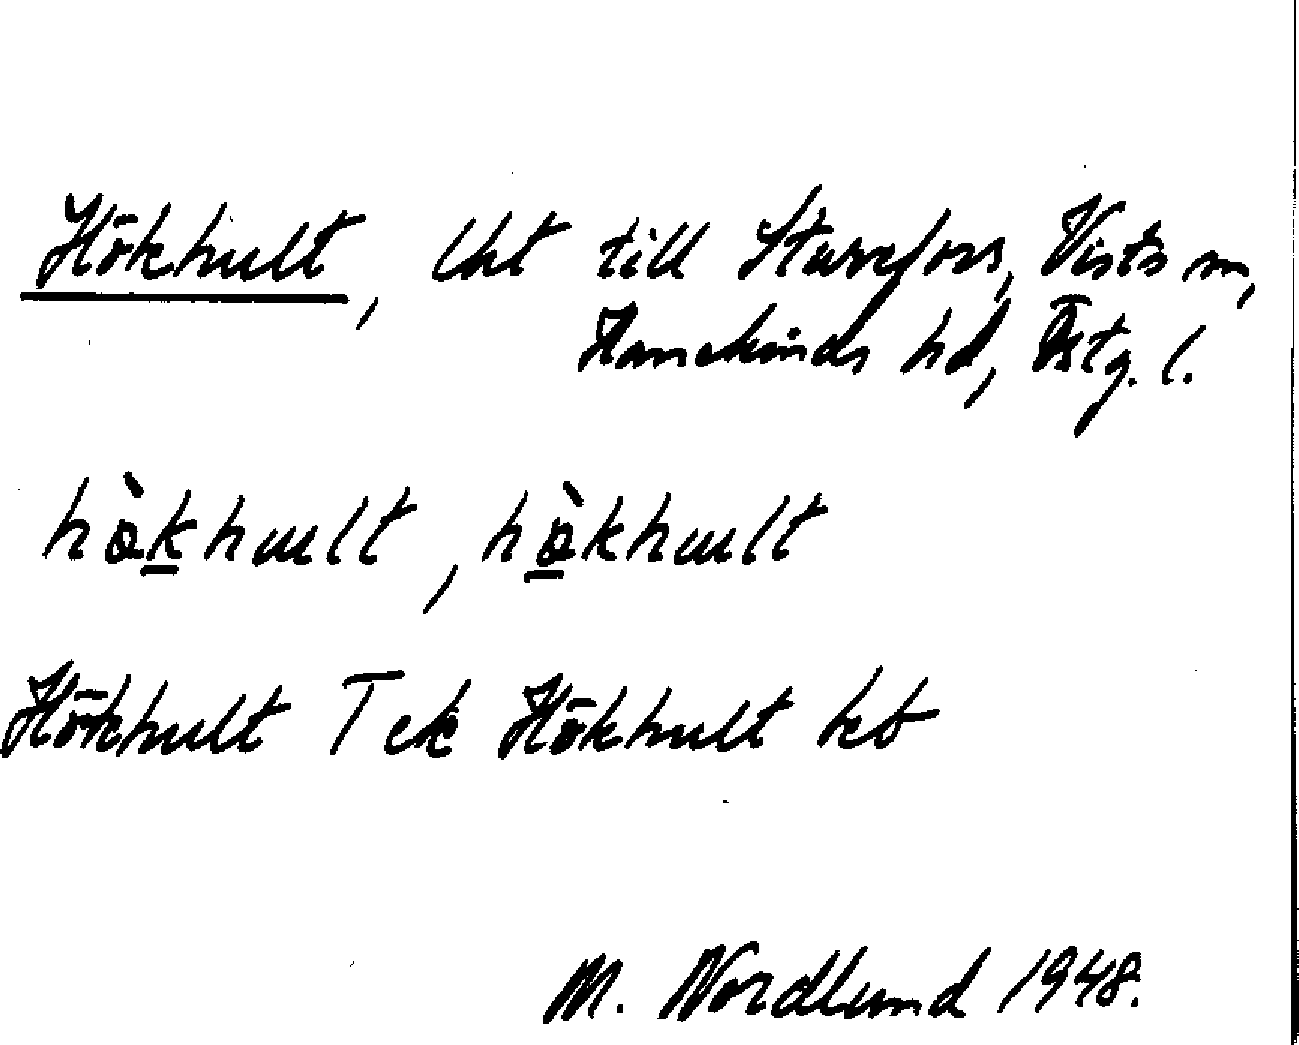 Hökhult, lht till Sturefors, Vists sn,
Hanekinds hd, Östg. l.
hö̀khult, hö̀khult
Hökhult T ek Hökhult kb
M. Nordlund 1948.